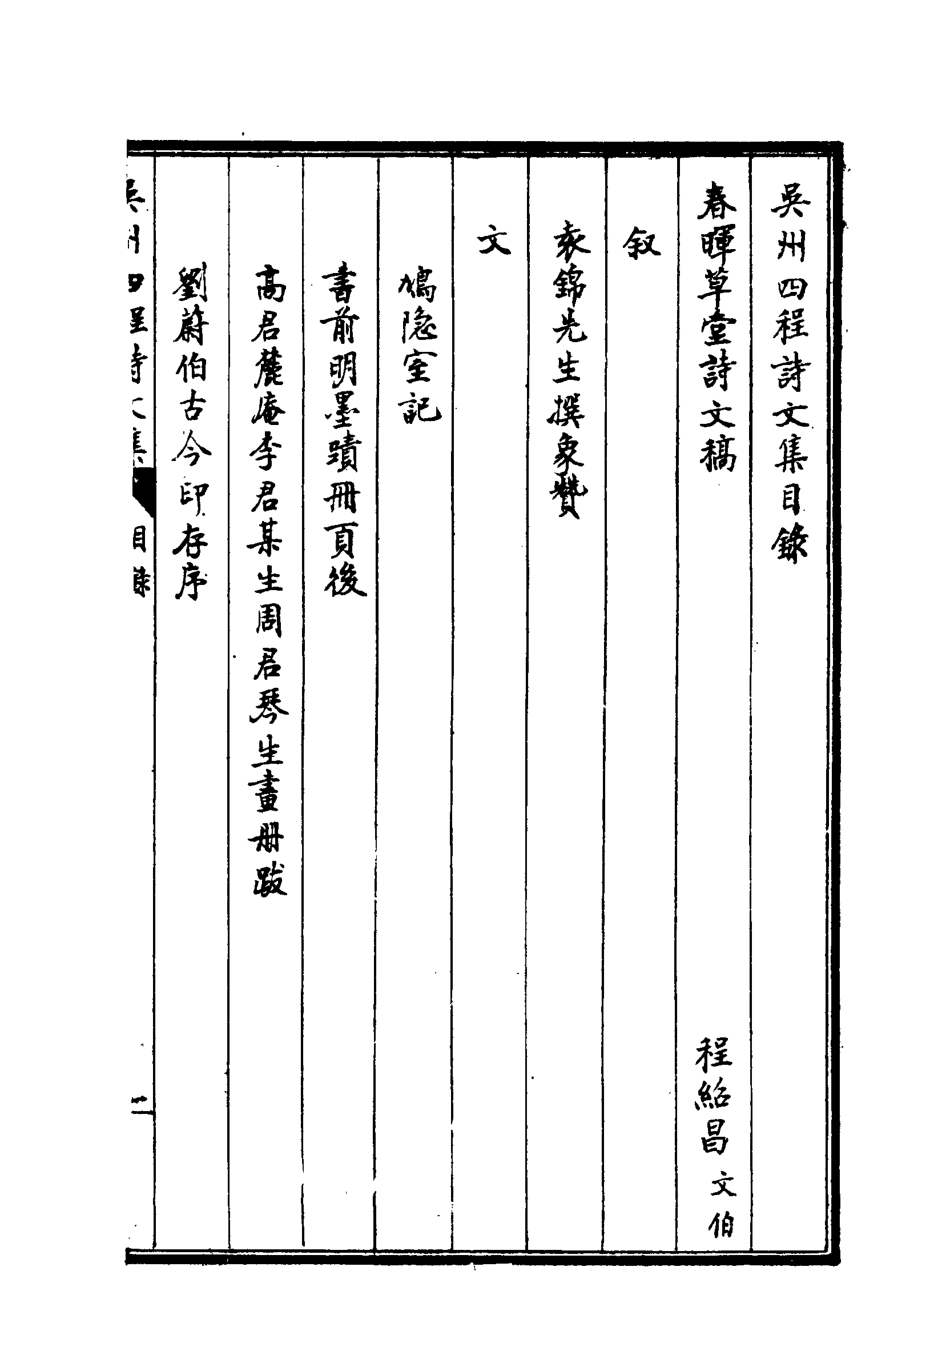 吳州四程詩文集目錄
春暉草堂詩文稿 程紹昌 文伯
叙
袁錦先生撰象贊
文
鳩隐室記
書前明墨蹟冊頁後
高君麓庵李君某生周君琴生畫册跋
劉蔚伯古今印存序
吳州四程詩文集 目錄 二